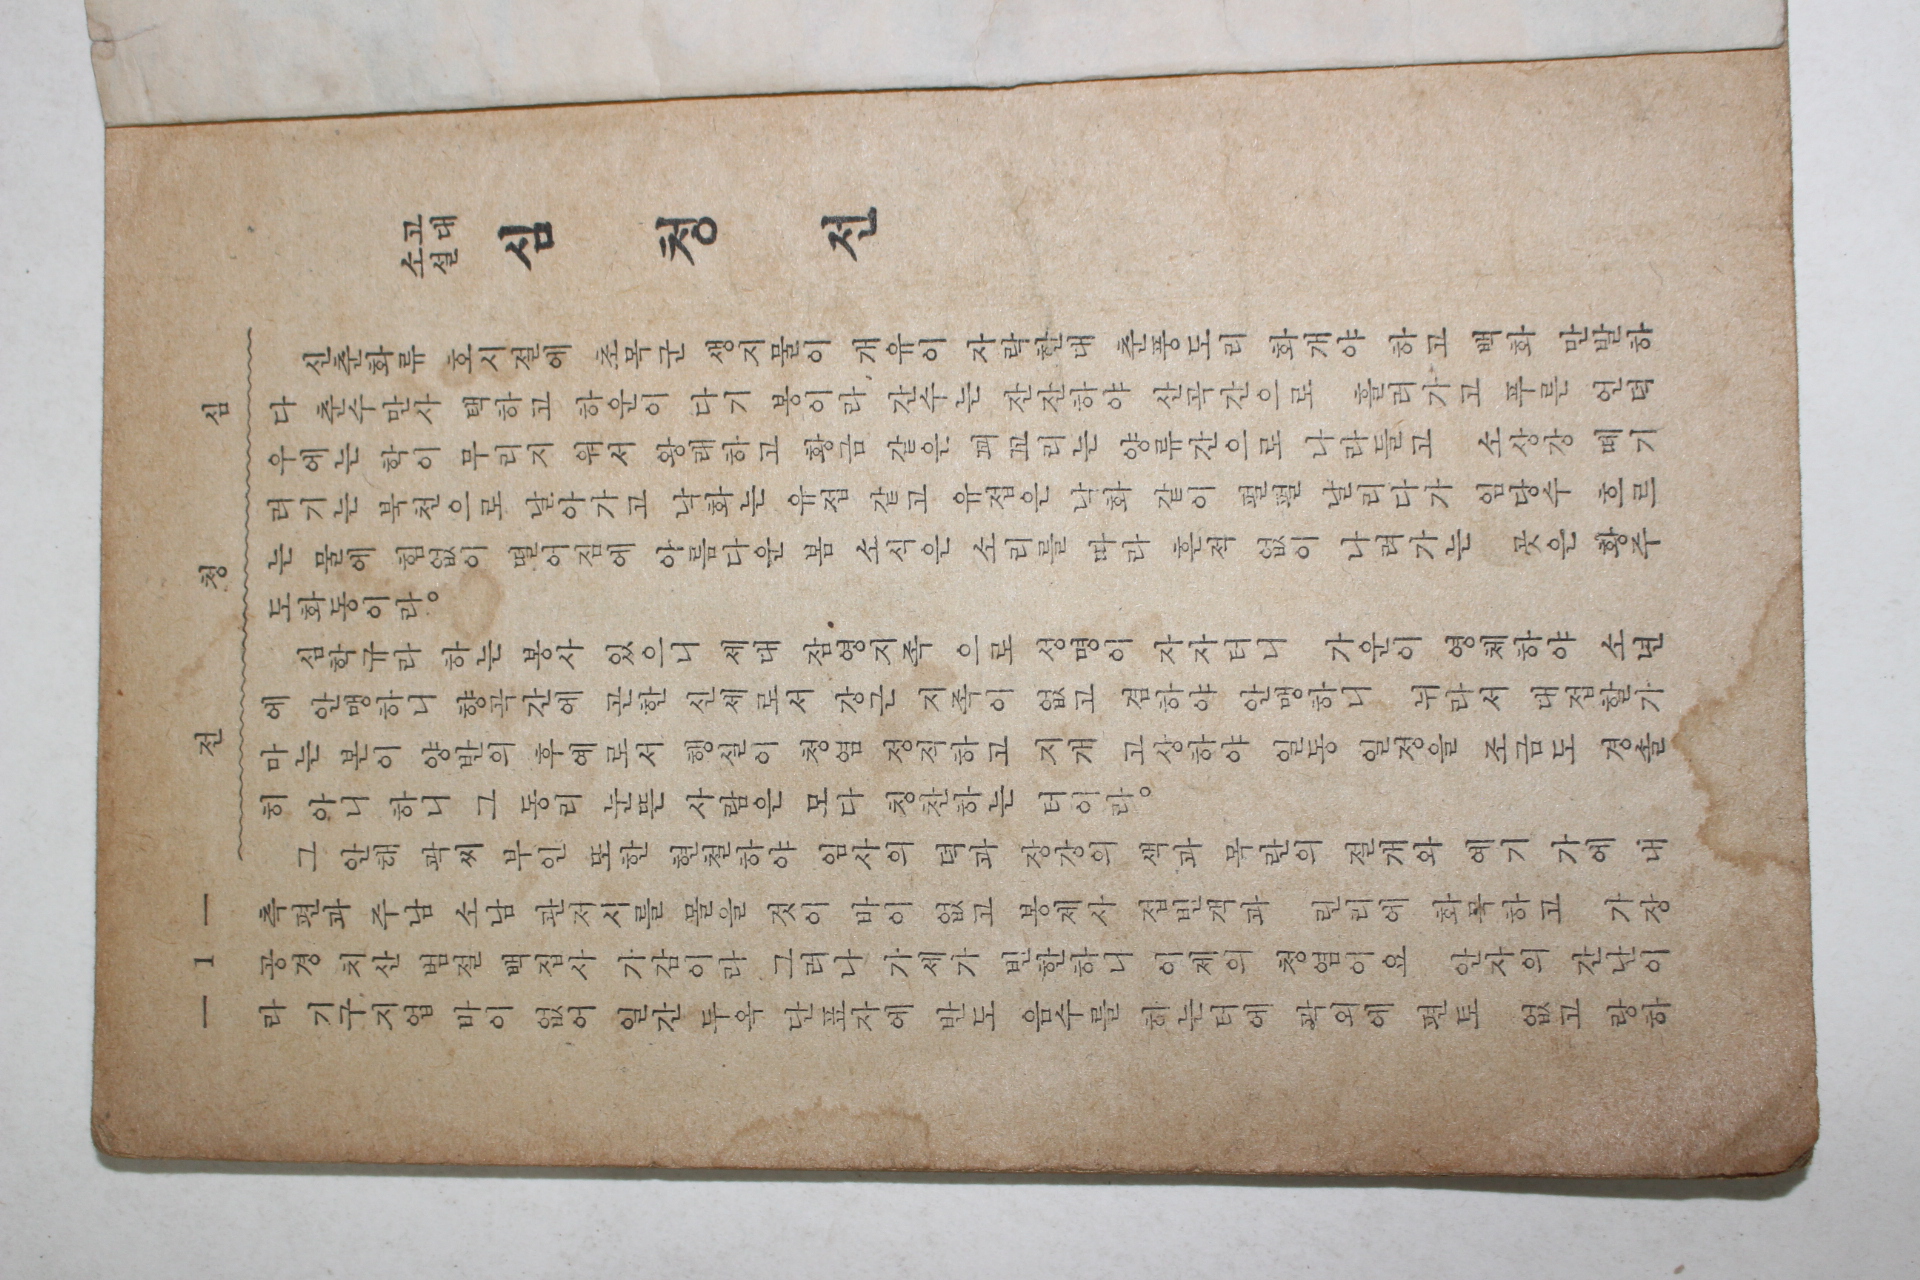 심청전
— 1 —
고대
소설
심청전
신춘화류 호시절에 초목군 생지물이 개유이 자락한대 춘풍도리 화개야 하고 백화 만발하
다 춘수만사 택하고 하운이 다기 봉이라 간수는 잔잔하야 산곡간으로 흘러가고 푸른 언덕
우에는 학이 무리지 워서 왕래하고 황금 같은 꾀꼬리는 양류간으로 나라들고 소상강 떼기
러기는 북천으로 날아가고 낙화는 유접 같고 유접은 낙화 같이 펄펄 날리다가 임당수 흐르
는 물에 힘없이 떨어짐에 아름다운 봄 소식은 소리를 따라 흔적 없이 나려가는 곳은 황주
도화동이라。
심학규라 하는 봉사 있으니 세대 잠영지족 으로 성명이 자자터니 가운이 영체하야 소년
에 안맹하니 향곡간에 곤한 신세로서 강근 지족이 없고 겸하야 안맹하니 뉘라서 대접할가
마는 본이 양반의 후예로서 행실이 청염 정직하고 지개 고상하야 일동 일정을 조금도 경솔
히 아니 하니 그 동리 눈뜬 사람은 모다 칭찬하는 터이라。
그 안해 곽씨 부인 또한 현철하야 임사의 덕과 장강의 색과 목란의 절개와 예기 가에 내
측편과 주남 소남 관저시를 몰을 것이 바이 없고 봉제사 접빈객과 린리에 화목하고 가장
공경 치산 범절 백집사 가감이라 그러나 가세가 빈한하니 이제의 청염이요 안자의 간난이
라 기구지업 바이 없어 일간 두옥 단표자에 반도 음수를 하는터에 곽외에 편토 없고 랑하